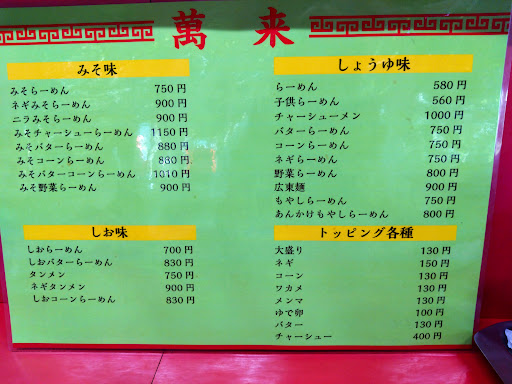 萬来
みそ味
みそらーめん 750円
ネギみそらーめん 900円
ニラみそらーめん 900円
みそチャーシューらーめん 1150円
みそバターらーめん 880円
みそコーンらーめん 880円
みそバターコーンらーめん 1010円
みそ野菜らーめん 900円
しお味
しおらーめん 700円
しおバターらーめん 830円
タンメン 750円
ネギタンメン 900円
しおコーンらーめん 830円
しょうゆ味
らーめん 580円
子供らーめん 560円
チャーシューメン 1000円
バターらーめん 750円
コーンらーめん 750円
ネギらーめん 750円
野菜らーめん 800円
広東麺 900円
もやしらーめん 750円
あんかけもやしらーめん 800円
トッピング各種
大盛り 130円
ネギ 150円
コーン 130円
ワカメ 130円
メンマ 130円
ゆで卵 100円
バター 130円
チャーシュー 400円